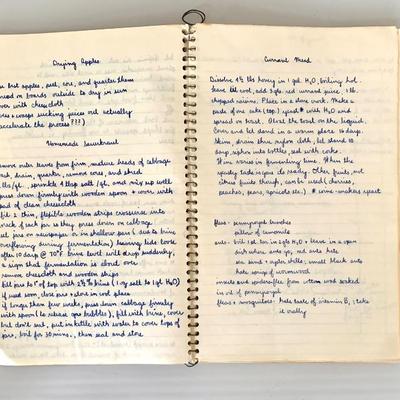 Drying Apples
best apples, peel, core, and quarter them
on boards outside to dry in sun
over with cheesecloth
& wasps sucking juices out actually
accelerate the process ???)
Homemade Sauerkraut
outer leaves from firm, mature heads of cabbage
drain, quarter, remove cores, and shred
sprinkle 4 tbsp salt / and mix up well
down firmly with wooden spoon + cover with
of clean cheesecloth
2 thin, flexible wooden strips crosswise into
of each jar so they press down on cabbage
jars on newspaper or in shallow pans (due to brine
overflowing during fermentation) leaving lids loose
after 10 days @ 70°F brine level will drop suddenly,
a sign that fermentation is about over
remove cheesecloth and wooden strips
fill jars to 1" of top with brine ( salt to 1 gal. H₂O)
if used soon, close + store in cool place
if longer than few weeks, press down cabbage firmly
with spoon (to release gas bubbles), fill with brine, cover
but don't seal, put in kettle with water to cover tops of
jars, boil for 30 mins., then seal and store
Currant Mead
Dissolve 4½ lbs honey in 1 gal. H₂O, boiling hot.
Leave till cool, add 3 pts. red currant juice, 1 lb.
chopped raisins. Place in a stone crock. Make a
paste of one cake (tbsp) yeast* with H₂O and
spread on toast. Float the toast on the liquid.
Cover and let stand in a warm place 10 days.
Skim, strain thru nylon cloth, let stand 10
days, siphon into bottles, seal with corks.
Time varies in fermenting time. When the
yeasty taste is gone its ready. Other fruits, not
citrus fruits though, can be used (cherries,
peaches, pears, apricots etc.) *
fleas - pennyroyal bunches
pillow of camomile
ants - boil 1 gal. tar in 2 gals H₂O + leave in a open
dish where ants go, red ants hate
sea sand + oyster shells, small black ants
hate sprigs of wormwood
insects and spiders flee from cotton wool soaked
in oil of pennyroyal
fleas + mosquitoes hate taste of vitamin B, take
it orally